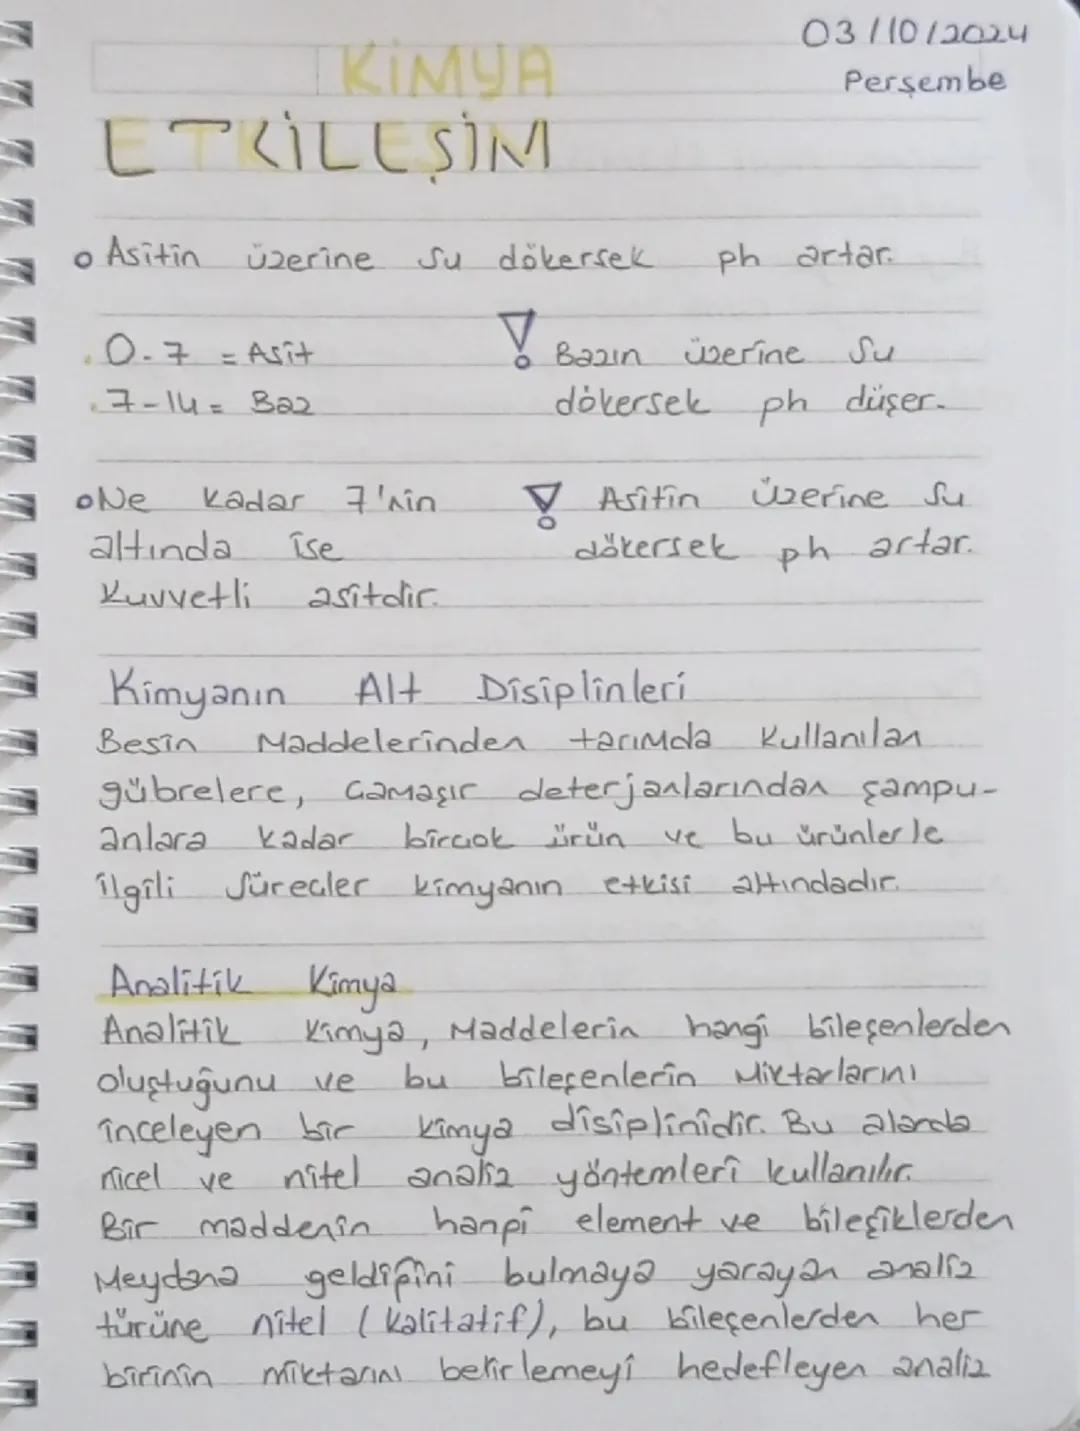 03/10/2024
Perşembe
KİMYA
ETKİLEŞİM
Asitin üzerine su dökersek ph artar.
0-7 = Asit
7-14 = Baz
! Bazın üzerine su
dökersek ph düşer.
Ne kadar 7'nin
altında ise
Kuvvetli asitdir.
! Asitin üzerine su
dökersek ph artar.
Kimyanın Alt Disiplinleri
Besin Maddelerinden tarımda kullanılan
gübrelere, Çamaşır deterjanlarından şampu-
anlara kadar birçok ürün ve bu ürünlerle
ilgili Süreçler kimyanın etkisi altındadır.
Analitik Kimya
Analitik Kimya, Maddelerin hangi bileşenlerden
oluştuğunu ve bu bileşenlerin Miktarlarını
inceleyen bir kimya disiplinidir. Bu alanda
nicel ve nitel analiz yöntemleri kullanılır.
Bir maddenin hangi element ve bileşiklerden
Meydana geldiğini bulmaya yarayan analiz
türüne nitel (kalitatif), bu bileşenlerden her
birinin miktarını belirlemeyi hedefleyen analiz